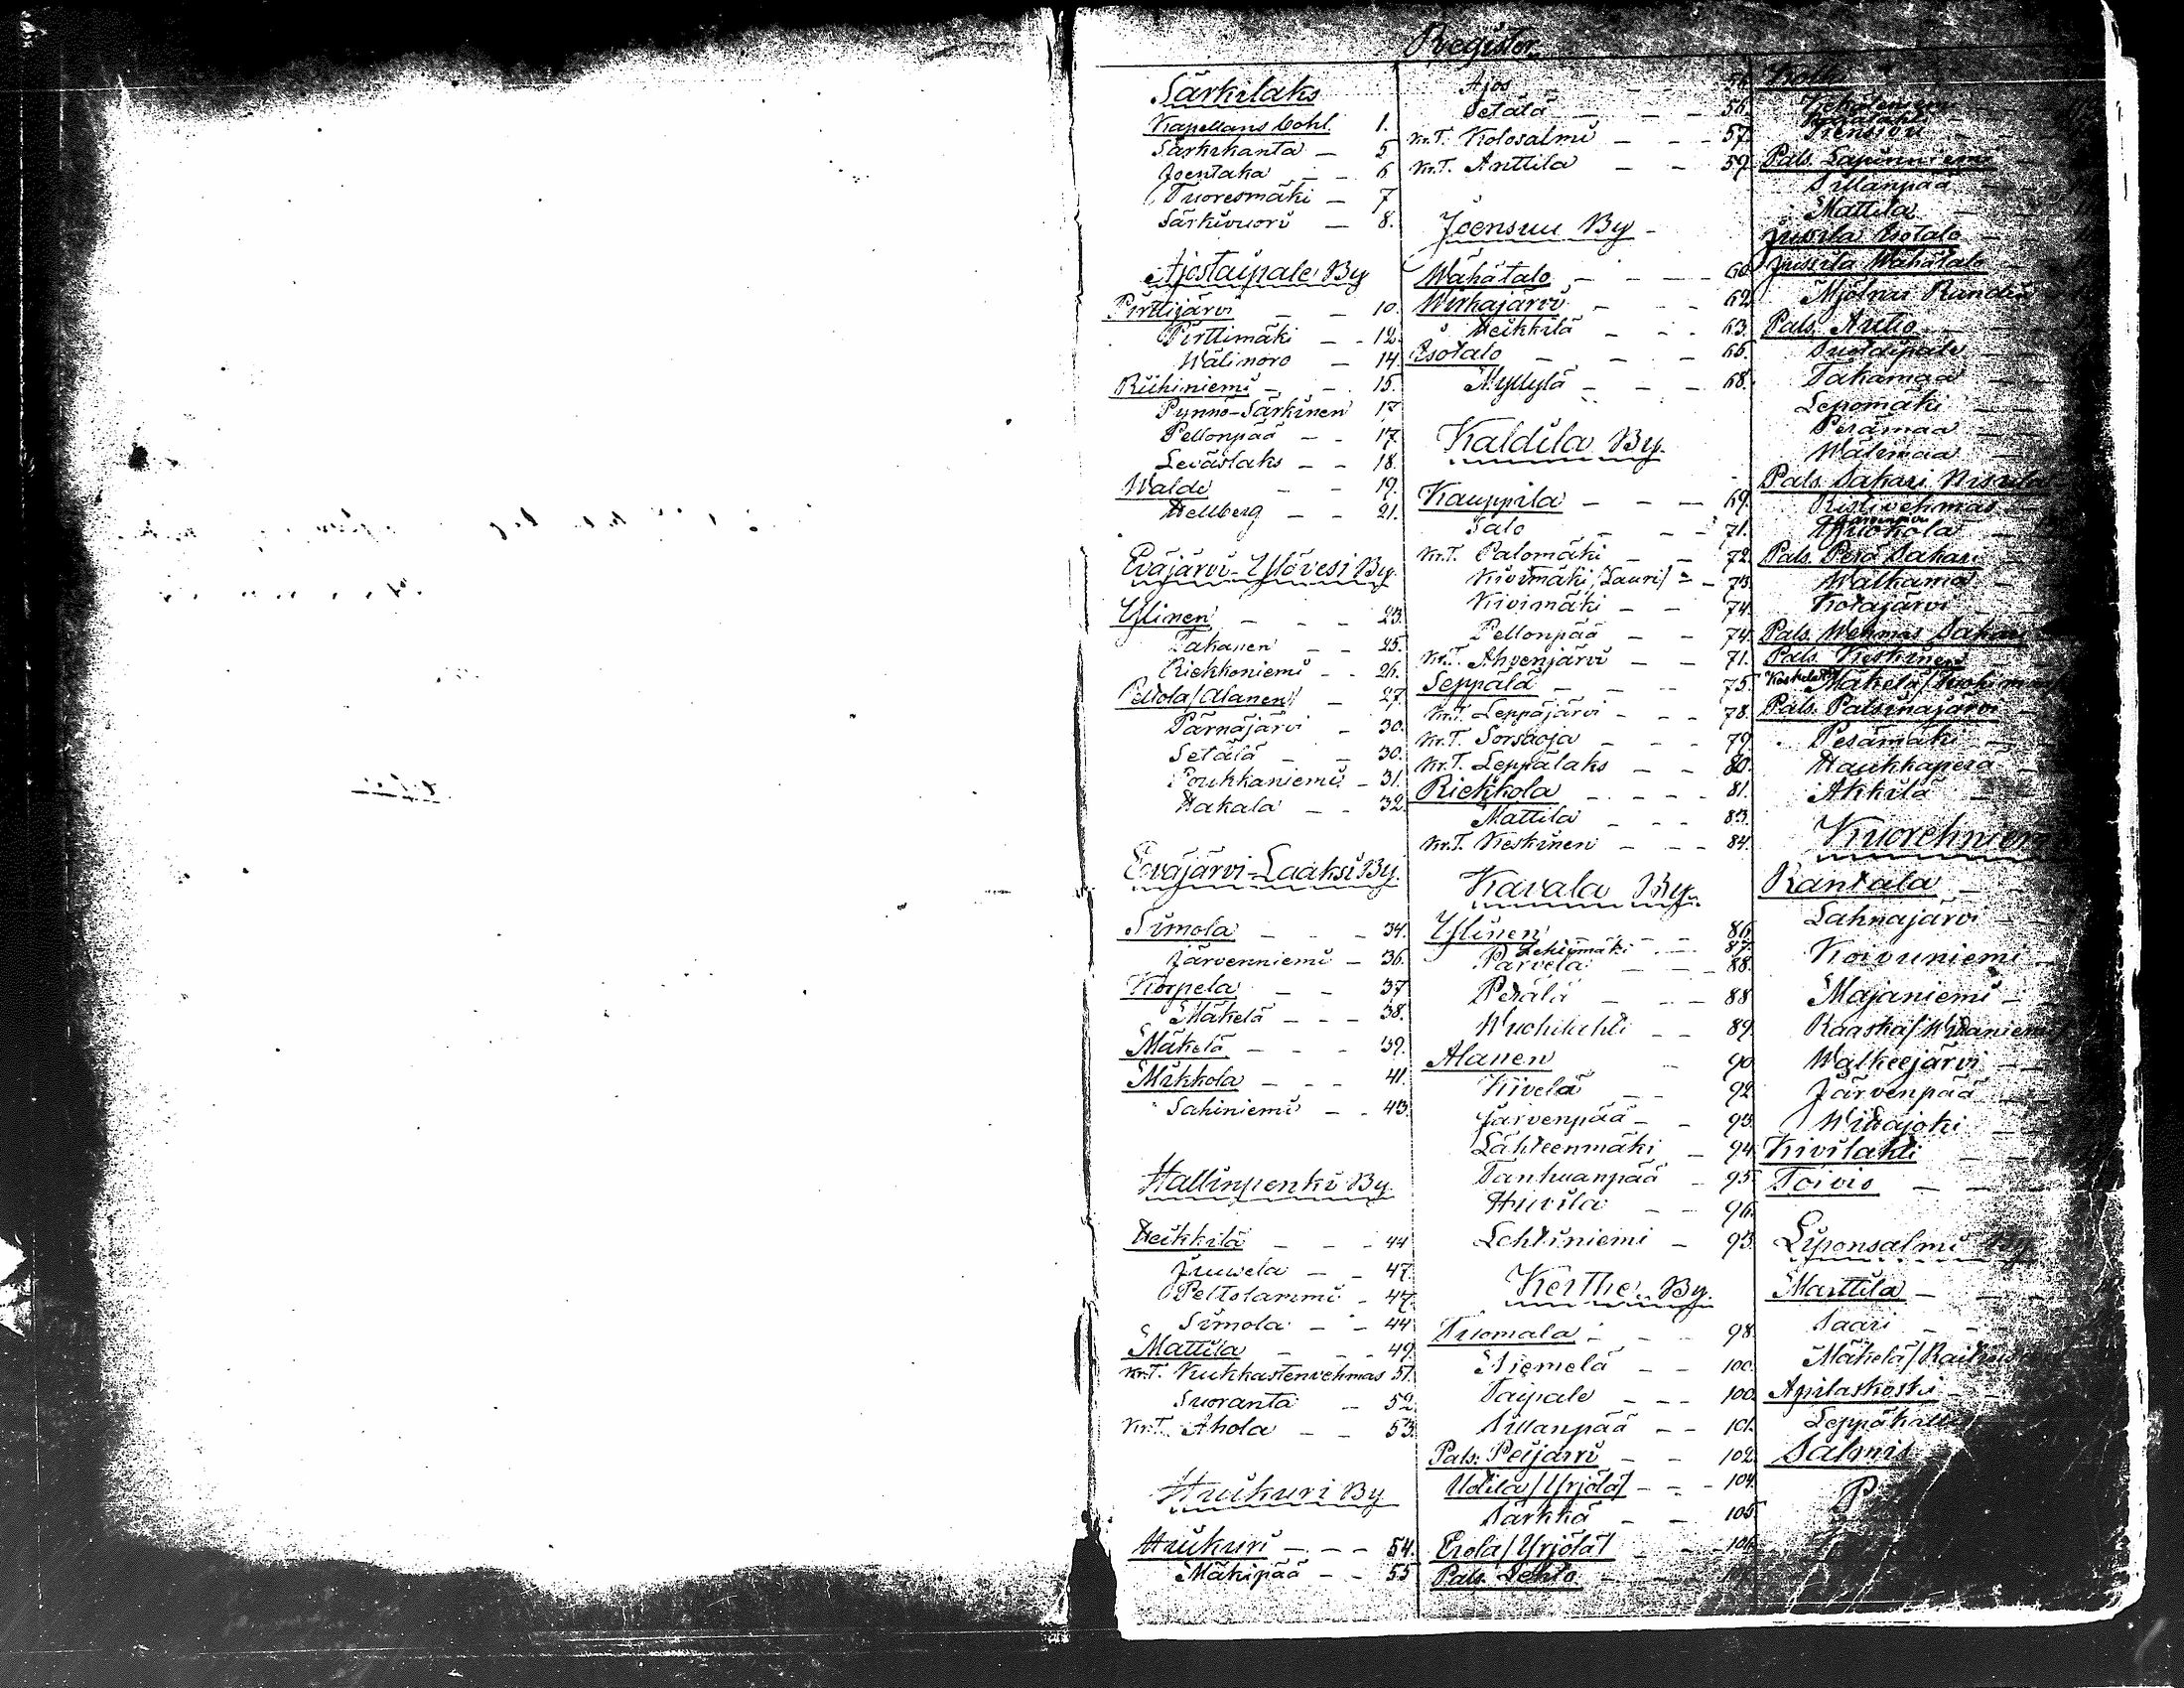 Register
Särkilaks
Kapellans bohl. 1.
Särkikanta — 5
Joentaka — — 6
Tuoresmäki — 7
Särkivuori — 8.
Ajostaipale By
Pirttijärvi — — 10.
Pirttimäki — — 12.
Wälinoro — 14.
Riihiniemi — — 15.
Pynnö-Särkinen 17
Pellonpää — — 17.
Levästaks — — 18.
Walde — — 19.
Hellberg — — 21.
Eväjärvi-Ylövesi By.
Ylinen — — — 23.
Takanen — — 25.
Riekkoniemi — — 26.
Peltola/Alanen/ — 27.
Pärnäjärvi — 30.
Setälä — — 30.
Poukkaniemi — 31.
Hakala — — 32.
Eväjärvi-Laaksi By.
Simola — — — 34.
Järvenniemi — 36.
Korpela — — 37
Mäkelä — — — 38.
Mäkelä — — — 39.
Mikkola — — — 41.
Sahiniemi — — 43.
Hallinpenki By.
Heikkilä — — — 44
Juwela — — 47.
Peltolammi — 47.
Simola — — 44
Mattila — — — 49.
Kr.T. Kuhkastenvehmas 51.
Suoranta — 52.
Kr.T. Ahola — — 53.
Huikuri By
Huikuri — — — 54.
Mäkipää — — 55
Ajos — — — 54.
Setälä — — — 56.
Kr.T. Kolosalmi — — — 57.
Kr.T. Anttila — — 59.
Joensuu By —
Wähätalo — — — — 60.
Wirkajärvi — — — 62.
Heikkilä — — — 63.
Isotalo — — — — 65.
Myllylä — — — 68.
Kaldila By.
Kauppila — — — 69.
Salo — — — 71.
Kr.T. Palomäki — — 72.
Kivimäki/Lauri/ — — 73.
Kivimäki — — 74.
Pellonpää — — 74.
Kr.T. Ahvenjärvi — — 71.
Seppälä — — — 75.
Kr.T. Leppäjärvi — — — 78.
Kr.T. Sorsaoja — — — 79.
Kr.T. Leppälaks — — 80.
Riekkola — — — — 81.
Mattila — — — 83.
Kr.T. Keskinen — — — 84.
Kavala By.
Ylinen — — — 86.
Lehtimäki — — 87.
Parvela — — — 88.
Perälä — — — 88
Wuohilahti — — 89.
Alanen — 90
Kivelä — — 92.
Järvenpää — — 93.
Lähteenmäki — 94.
Tanhuanpää — 95.
Huvila — — 96.
Lehtiniemi — 93.
Kerthe By.
Tuomala — — — 98.
Niemelä — — 100.
Taipale — — — 100.
Sillanpää — — 101.
Pals. Peijärvi — — 102.
Udila/Yrjölä/ — — — 104.
Särkkä — — 105
Erola/Yrjölä/ — — — 106.
Pals. Lehto — —
Pals. Lapinniemi
Sillanpää
Mattila
Juvila Isotalo —
Jussila Wähätalo
Mjölnar
Pals. Autio —
Takamaa
Lepomäki
Perämaa
Wälimaa
Pals. Sakari
Ristivehmas
Pals. Perä Sakari
Walkama
Kotajärvi
Pals. Wehmas Sakari
Pals. Keskinen
Mäkelä
Pals. Palsinajärvi
Perämäki
Haukkaperä
Akkila
Kuorehniemi
Rantala —
Lahnajärvi —
Koivuniemi —
Majaniemi —
Raaska/Witaniemi/
Walkeejärvi —
Järvenpää
Witajoki
Kivilahti
Toivio —
Liponsalmi By
Marttila —
Saari —
Mäkelä/
Apilaskoski
Leppäkallio
Salmis